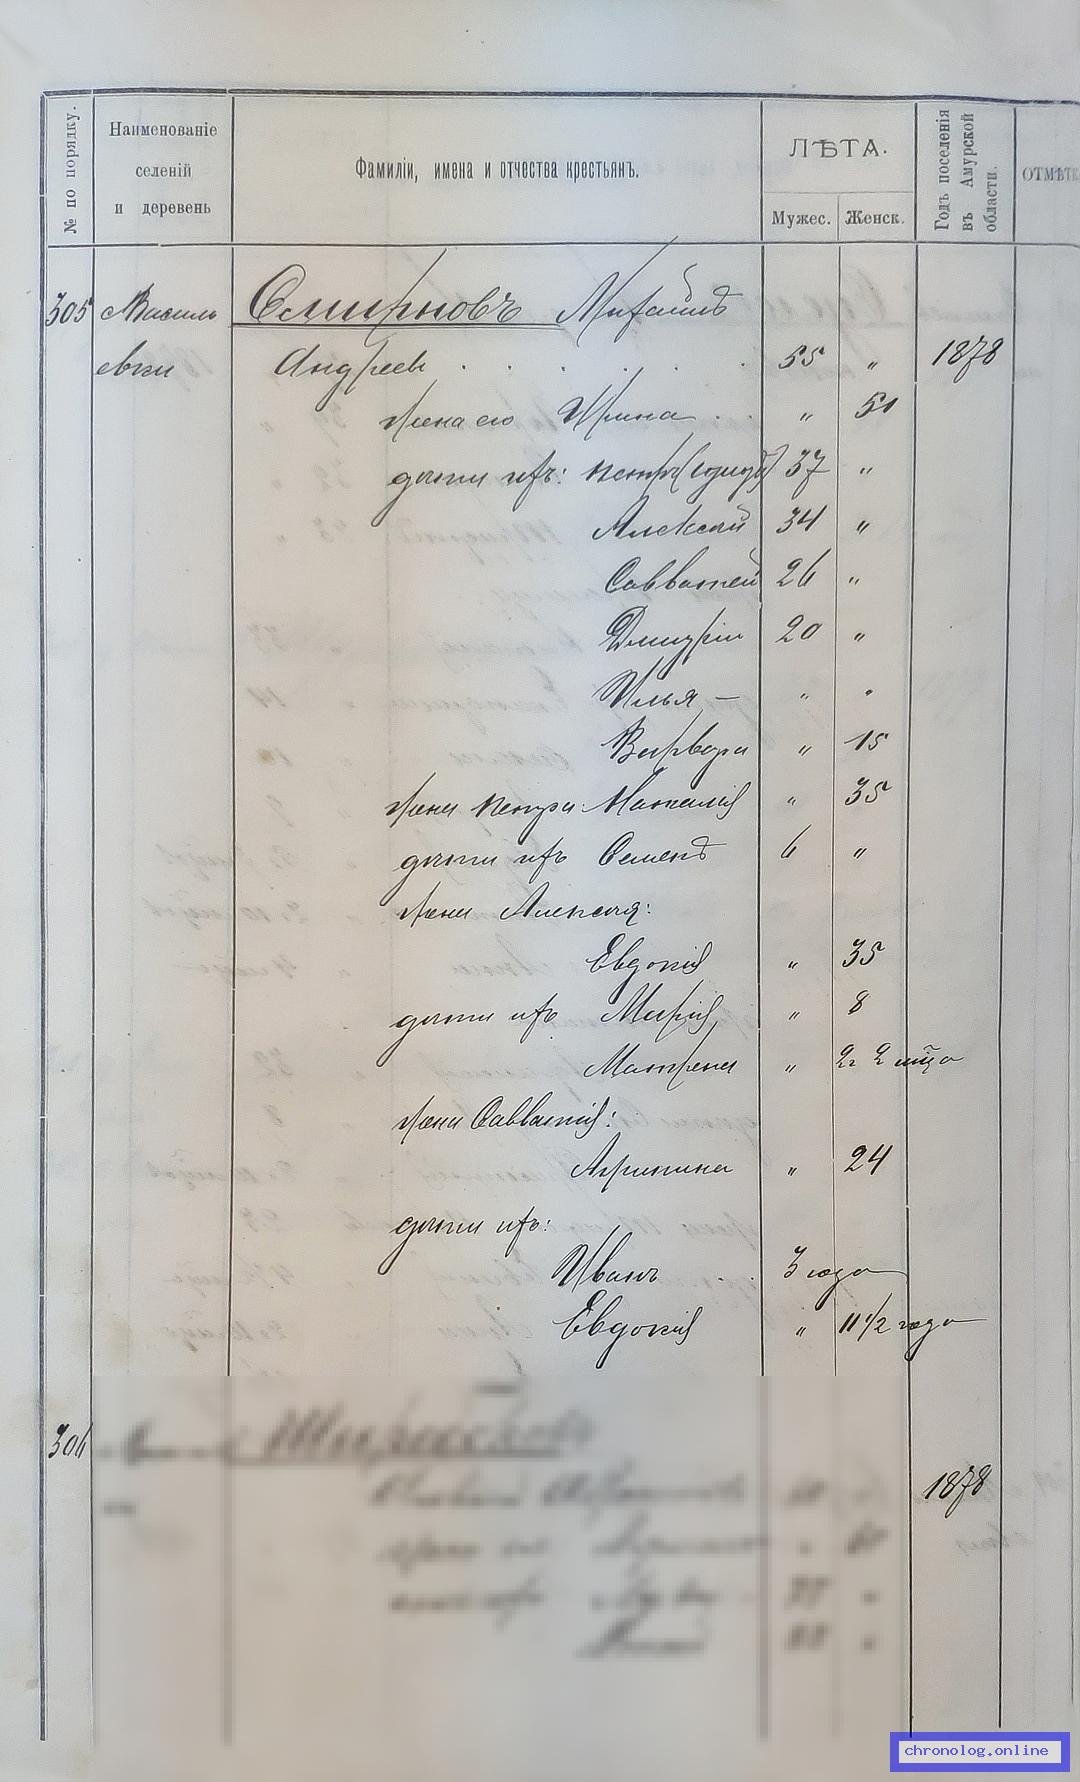 № по порядку.
Наименованіе
селеній
и деревень
Фамиліи, имена и отчества крестьянъ.
ЛѢТА.
Мужес. Женск.
Годъ поселенія
въ Амурской
области.
ОТМѢТК
305 Василь Смирновъ Михаилъ
евки Андреевъ . . . . . . 55 „ 1878
жена его Ирина . . „ 51
дѣти ихъ: Петръ 37 „
Алексѣй 34 „
Савватей 26 „
Дмитрій 20 „
Илья — „ „
Варвара „ 15
жена Петра Наталія „ 35
дѣти ихъ Семенъ 6 „
жена Алексѣя:
Евдокія „ 35
дѣти ихъ Марія „ 8
Матрена „ 2 г 2 мѣца
жена Савватія:
Агрипина „ 24
дѣти ихъ:
Иванъ 3 года
Евдокія „ 1 1/2 года
306
1878
chronolog.online